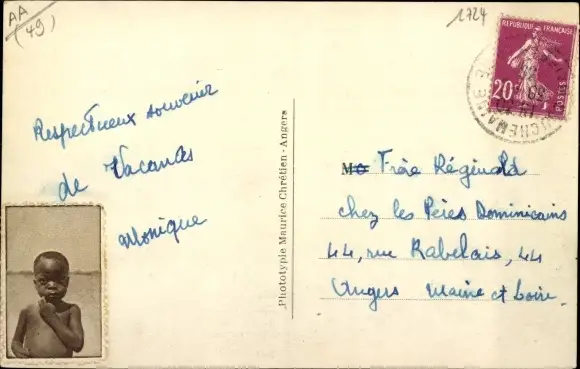 AA
(49)
1724
REPUBLIQUE FRANÇAISE
20c
POSTES
Respectueux souvenir
de Vacances
Monique
Phototypie Maurice Chrétien - Angers
M Frère Réginald
chez les Pères Dominicains
44, rue Rabelais, 44
Angers Maine et Loire